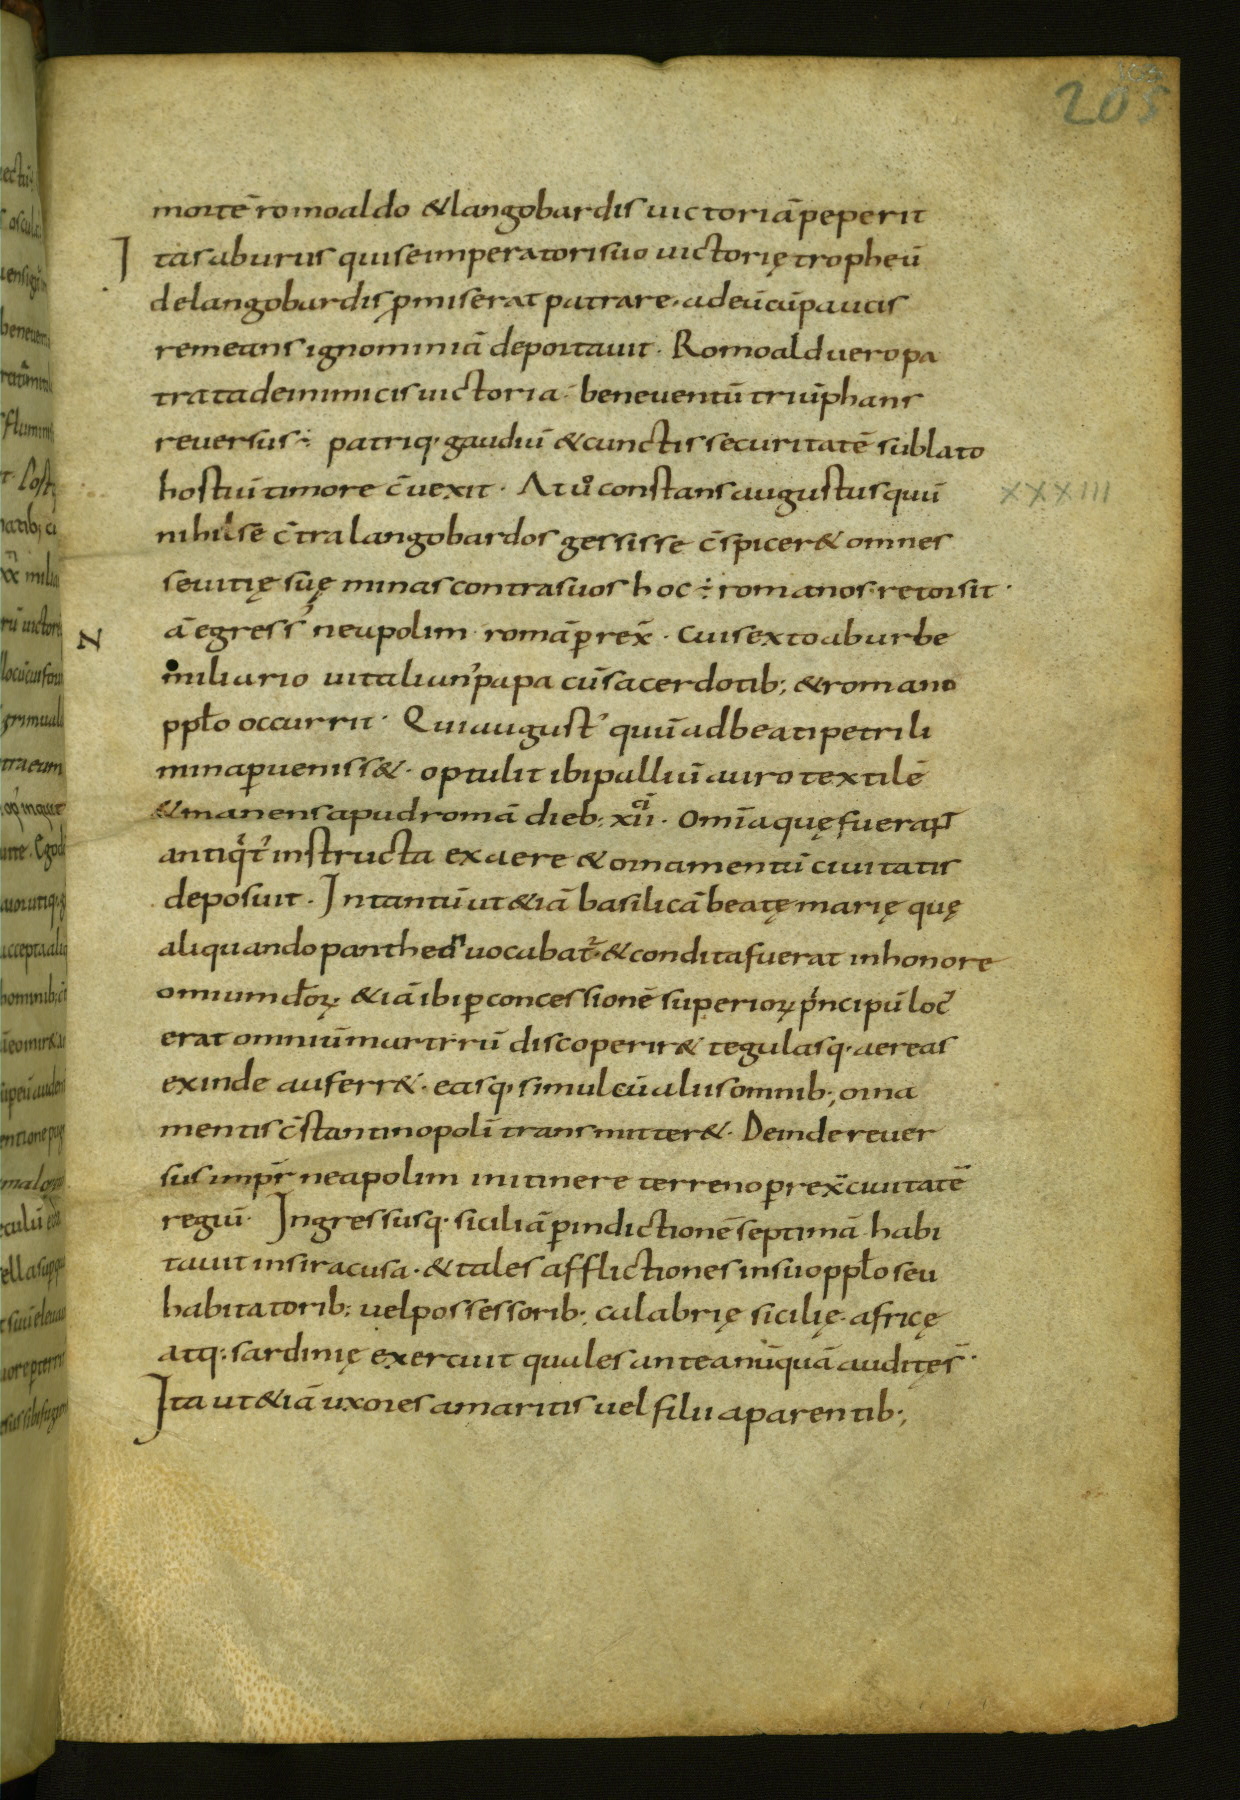 205
mortē romoaldo & langobardis uictoriā peperit
Ita saburus qui se imperatori suo uictorię tropheū
de langobardis p̄miserat patrare, ad eū cū paucis
remeans ignominiā deportauit. Romoald uero pa
trata de inimicis uictoria. beneuentū triūphans
reuersus; patriq. gaudiū & cunctis securitatē sublato
hostiū timore c̄uexit. At ů constans augustus quū
nihil se c̄tra langobardos gessisse c̄spicer& omnes
XXXIII
seuitię suę minas contra suos hoc ÷ romanos retorsit.
Nā egress’ neapolim romā ꝑrex̄. Cui sexto ab urbe
miliario uitalian’ papa cū sacerdotib; & romano
pplo occurrit. Qui august’ quū ad beati petri li
mina ꝑueniss&. optulit ibi palliū auro textilē
& manens apud romā dieb; xii. Om̄ia quę fuerant
antiq̇t’ instructa ex aere & ornamentū ciuitatis
deposuit. In tantū ut & iā basilicā beatę marię quę
aliquando pantheon uocabat̄. & condita fuerat in honore
omnium dōꝝ & iā ibi ꝑ concessionē superioꝝ pͥncipū loc’
erat omniū martirū discoperir& tegulasq. aereas
exinde auferr&. easq, simul cū aliis omnib; orna
mentis c̄stantinopolī transmitter&. Deinde reuer
sus impr̄ neapolim itinere terreno ꝑrex̄ ciuitatē
regiū. Ingressusq. siciliā ꝑ indictionē septimā habi
tauit in siracusa. & tales afflictiones in suo pplo seu
habitatorib; uel possessorib; calabrię sicilię. africę
atq; sardinię exercuit quales antea nūquā auditę s̄.
Ita ut & iā uxores a maritis uel filii a parentib;